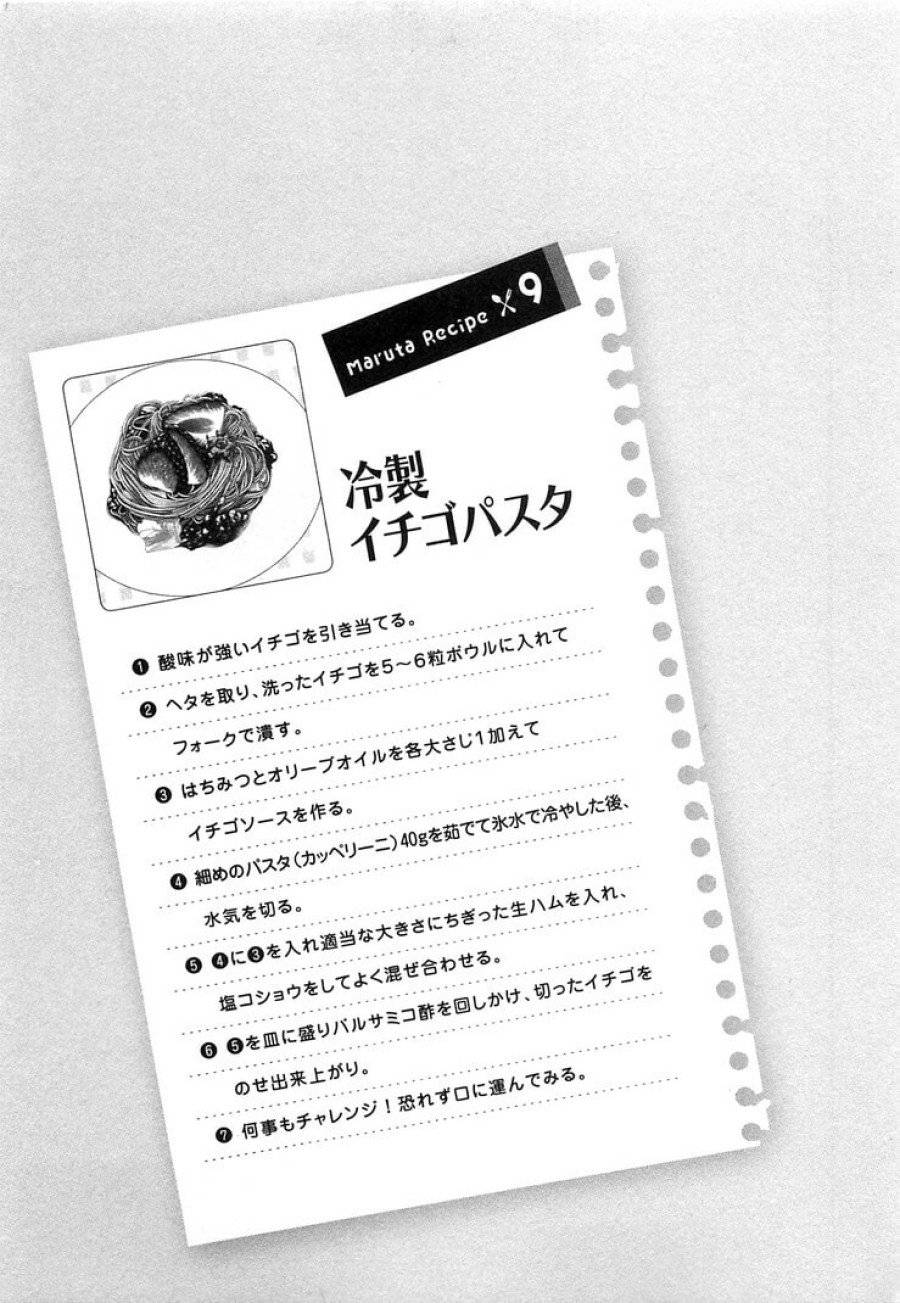 Maruta Recipe 9
冷製
イチゴパスタ
❶ 酸味が強いイチゴを引き当てる。
❷ ヘタを取り、洗ったイチゴを5〜6粒ボウルに入れて
フォークで潰す。
❸ はちみつとオリーブオイルを各大さじ1加えて
イチゴソースを作る。
❹ 細めのパスタ（カッペリーニ）40gを茹でて氷水で冷やした後、
水気を切る。
❺ ❹に❸を入れ適当な大きさにちぎった生ハムを入れ、
塩コショウをしてよく混ぜ合わせる。
❻ ❺を皿に盛りバルサミコ酢を回しかけ、切ったイチゴを
のせ出来上がり。
❼ 何事もチャレンジ！恐れず口に運んでみる。